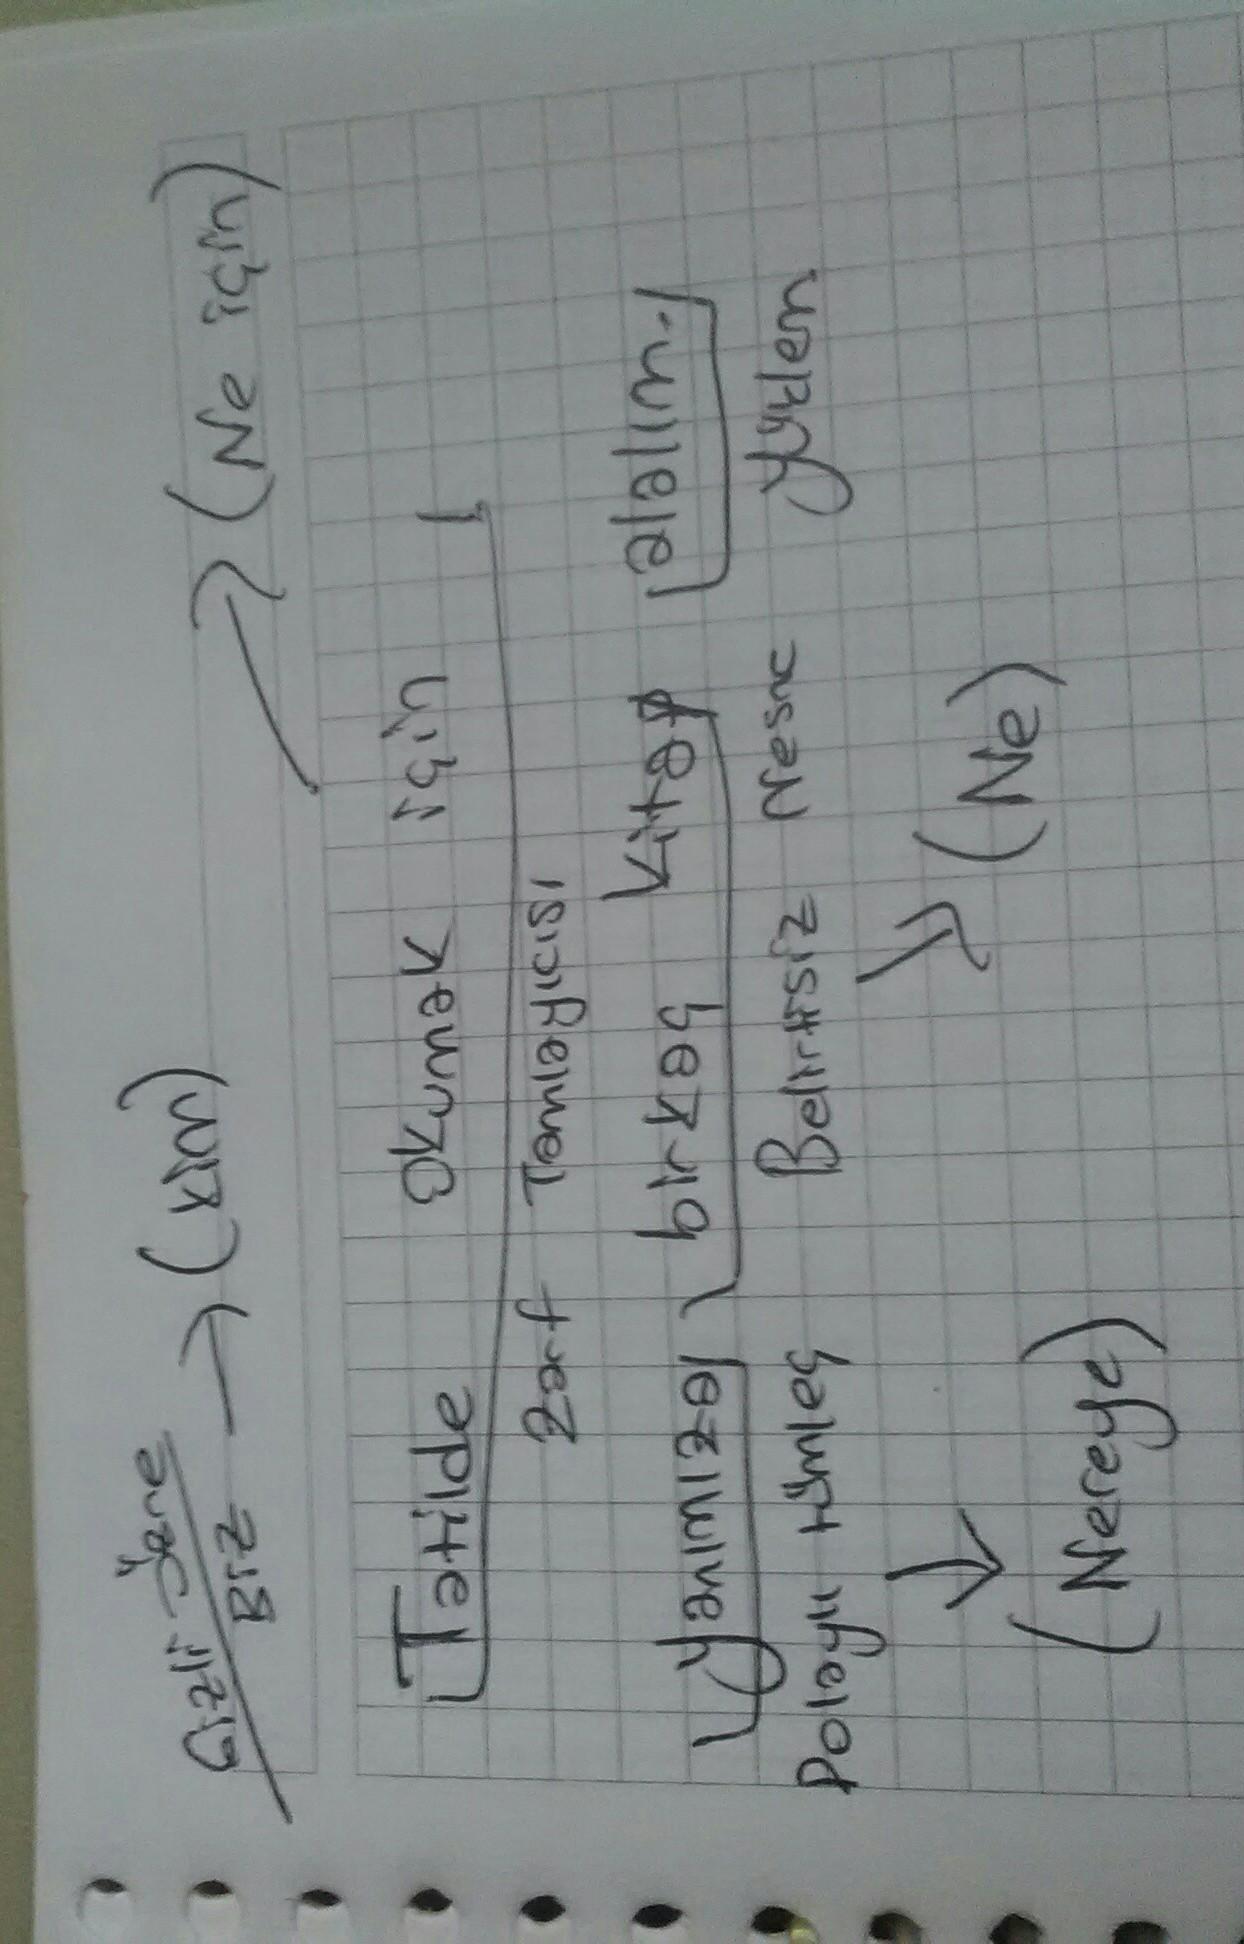 Gizli özne
Biz → (Kim) → (Ne için)
Tatilde okumak için
Zarf Tamlayıcısı
Yanımıza birkaç kitap alalım.
Dolaylı tümleç Belirtisiz Nesne Yüklem
(Nereye) (Ne)